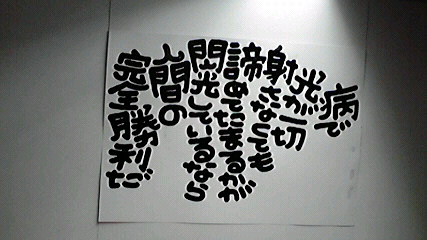 病で
光が一切
射さなくても
諦めてたまるか
開光しているなら
人間の
完全勝利だ